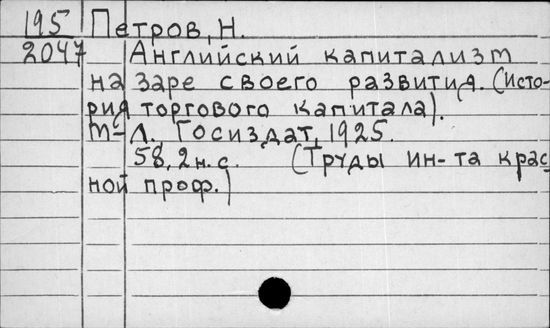 195 Петров, Н.
2047 Английский капитализм
на заре своего развития. (Исто-
рия торгового капитала).
М-Л. Госиздат, 1925.
58, 2 н. с. (Труды ин-та крас
ной проф.)